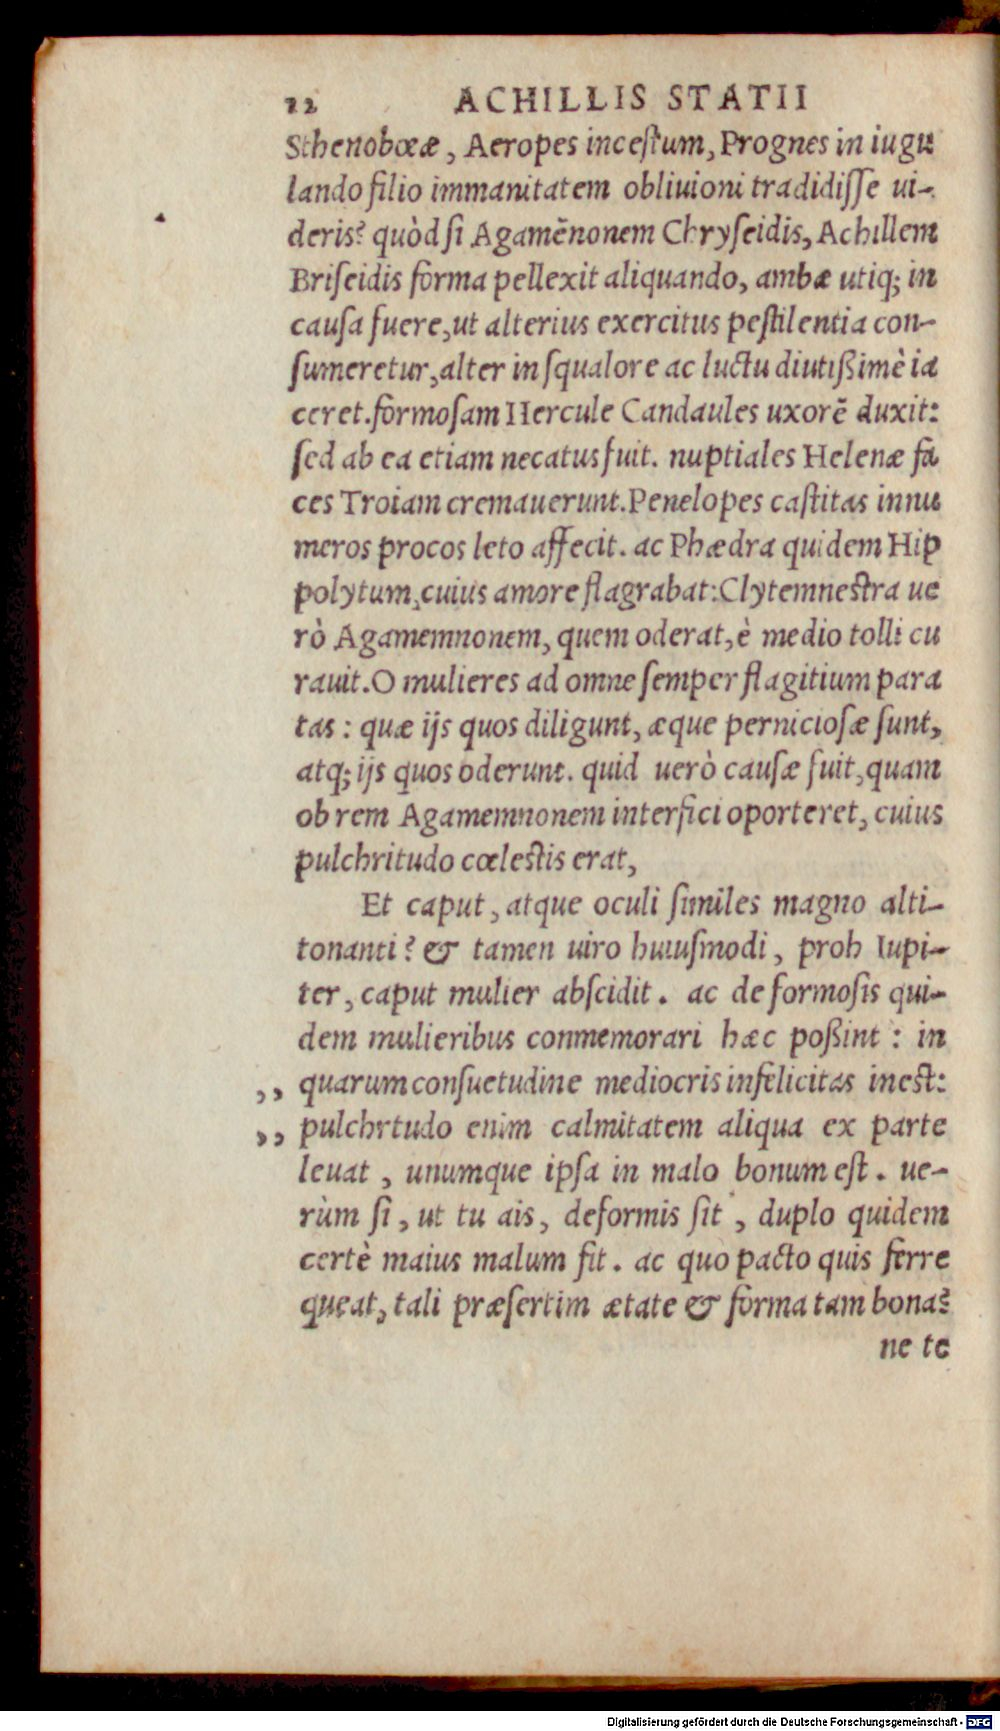 12 ACHILLIS STATII
Sthenobœæ, Aeropes incestum, Prognes in iugu
lando filio immanitatem obliuioni tradidisse ui-
deris? quòd si Agamēnonem Chryseidis, Achillem
Briseidis forma pellexit aliquando, ambæ utiq; in
causa fuere, ut alterius exercitus pestilentia con-
sumeretur, alter in squalore ac luctu diutißimè ia
ceret. formosam Hercule Candaules uxorē duxit:
sed ab ea etiam necatus fuit. nuptiales Helenæ fa
ces Troiam cremauerunt. Penelopes castitas innu
meros procos leto affecit. ac Phædra quidem Hip
polytum, cuius amore flagrabat: Clytemnestra ue
rò Agamemnonem, quem oderat, è medio tolli cu
rauit. O mulieres ad omne semper flagitium para
tas: quæ ijs quos diligunt, æque perniciosæ sunt,
atq; ijs quos oderunt. quid uerò causæ fuit, quam
ob rem Agamemnonem interfici oporteret, cuius
pulchritudo cœlestis erat,
Et caput, atque oculi similes magno alti-
tonanti? & tamen uiro huiusmodi, proh Iupi-
ter, caput mulier abscidit. ac de formosis qui-
dem mulieribus conmemorari hæc poßint: in
,, quarum consuetudine mediocris infelicitas inest:
,, pulchrtudo enim calmitatem aliqua ex parte
leuat, unumque ipsa in malo bonum est. ue-
rùm si, ut tu ais, deformis sit, duplo quidem
certè maius malum fit. ac quo pacto quis ferre
queat, tali præsertim ætate & forma tam bona?
ne te
Digitalisierung gefördert durch die Deutsche Forschungsgemeinschaft - DFG